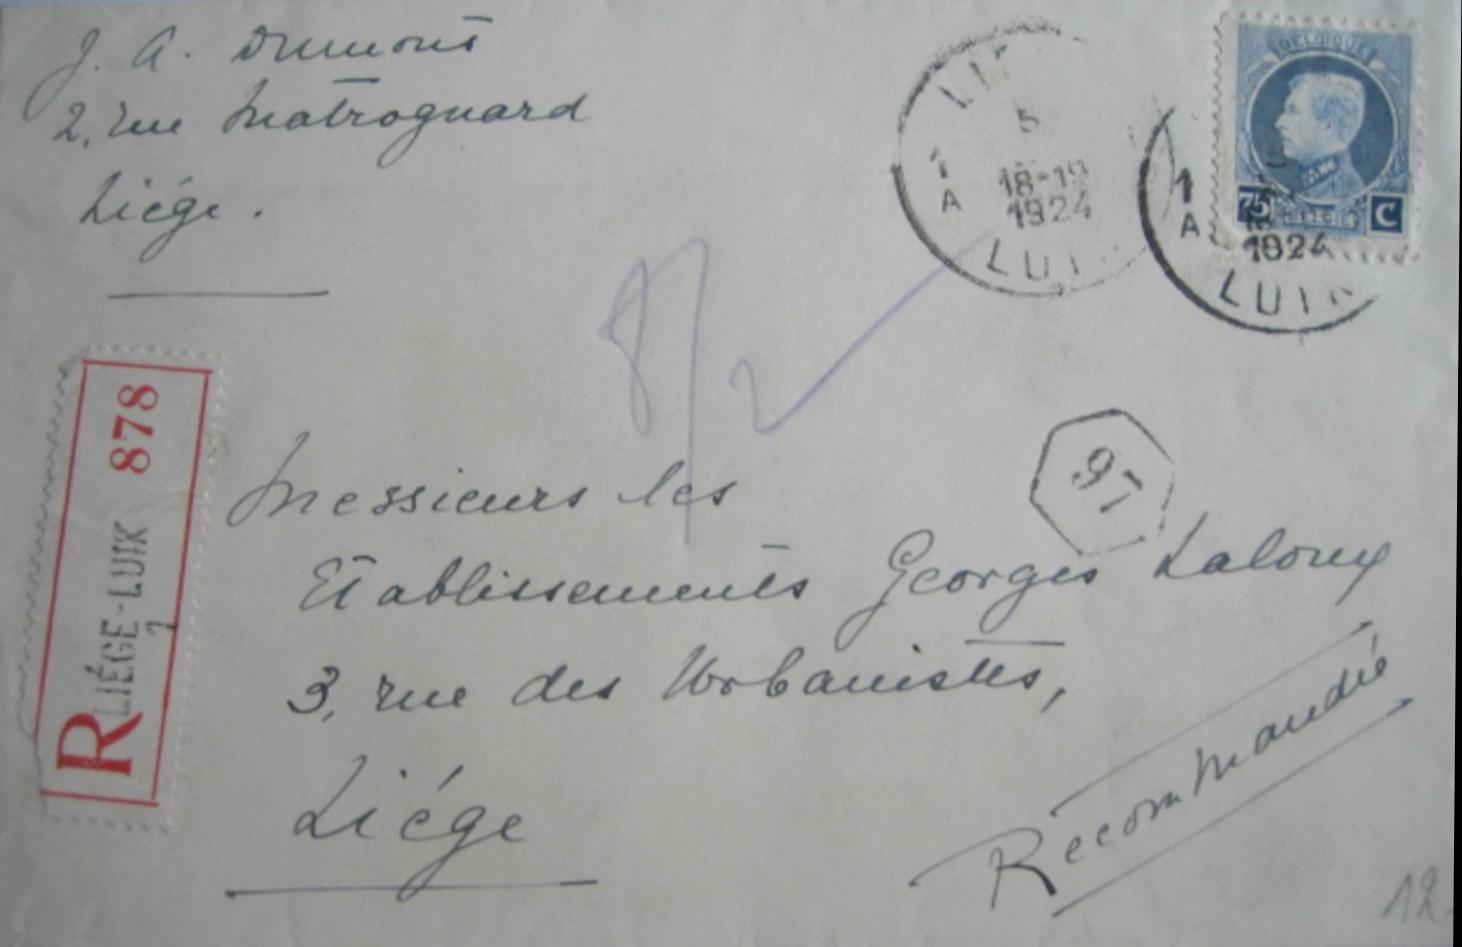 J. A. Dumont
2, rue Matrognard
Liége.
1
A
LI
5
18-19
1924
LUI
1
A
1924
LUIK
BELGIQUE
75 BELGIE C
R LIÉGE-LUIK 878
1
8/2
97
Messieurs les
Etablissements Georges Laloux
3, rue des Urbanistes,
Liége
Recommandé
12-